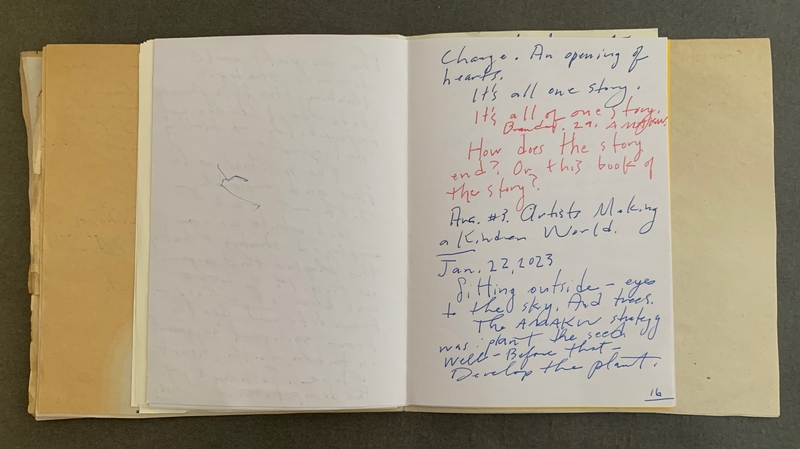 Change. An opening of
hearts.
It's all one story.
It's all of one story.
29. AMAKW.
How does the story
end? Or, this book of
the story?
#3. Artists Making
a Kinder World.
Jan. 22, 2023
Sitting outside – eyes
to the sky. And trees.
The AMAKW strategy
was: plant the seed
well – Before that –
Develop the plant.
16